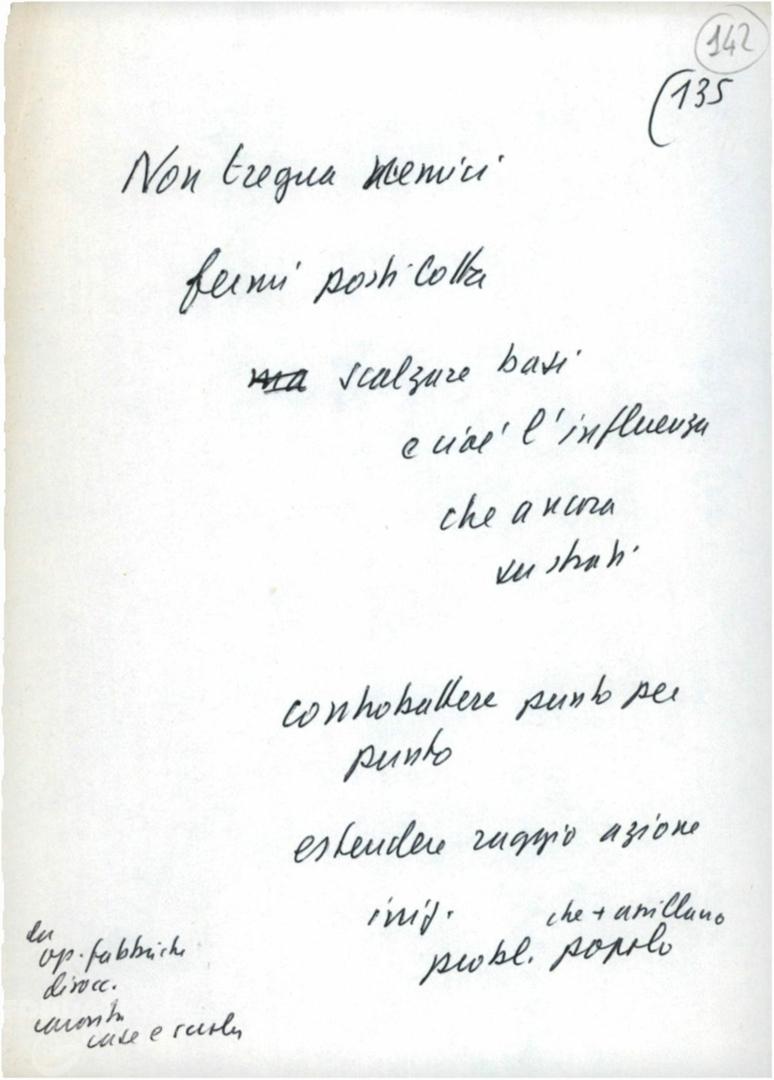 142
(135
Non tregua nemici
fermi posti lotta
ma scalzare basi
e cioè l'influenza
che ancora
su strati
controbattere punto per
punto
estendere raggio azione
iniz.
che + assillano
probl. popolo
su
op. fabbriche
disocc.
carovita
case e scuola